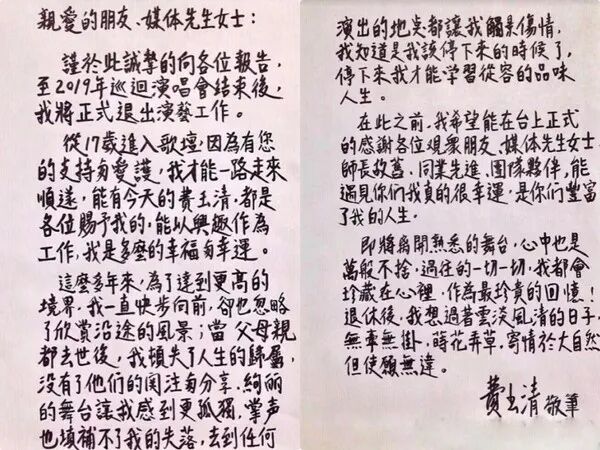 親愛的朋友、媒体先生女士：
謹於此誠摯的向各位報告，
至2019年巡迴演唱會結束後，
我將正式退出演藝工作。
從17歲進入歌壇，因為有您
的支持與愛護，我才能一路走來
順遂，能有今天的費玉清，都是
各位賜予我的，能以興趣作為
工作，我是多麼的幸福與幸運。
這麼多年來，為了達到更高的
境界，我一直快步向前，卻也忽略
了欣賞沿途的風景；當父母親
都去世後，我頓失了人生的歸屬，
沒有了他們的関注與分享，絢麗
的舞台讓我感到更孤獨，掌声
也填補不了我的失落，去到任何
演出的地点都讓我觸景傷情，
我知道是我該停下來的時候了，
停下來我才能学習從容的品味
人生。
在此之前，我希望能在台上正式
的感谢各位观衆朋友、媒体先生女士、
師長故舊、同業先進、團隊夥伴，能
遇見你們我真的很幸運，是你們豐富
了我的人生。
即將离開熟悉的舞台，心中也是
萬般不捨，過往的一切一切，我都會
珍藏在心裡，作為最珍貴的回憶！
退休後，我想過著雲淡風清的日子，
無牽無掛，蒔花弄草，寄情於大自然
但使願無違。
費玉清 敬筆